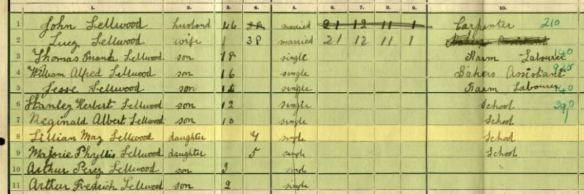 1. 2. 3. 4. 5. 6. 7. 8. 9. 10.
1 John Sellwood husband 46 38 married 21 12 11 1 Carpenter 210
2 Lucy Sellwood wife 1 38 married 21 12 11 1 Bakers Assistant
3 Thomas Frank Sellwood son 18 single Farm Labourer
4 William Alfred Sellwood son 16 single Bakers Assistant
5 Jesse Sellwood son 14 single Farm Labourer
6 Stanley Herbert Sellwood son 12 single School
7 Reginald Albert Sellwood son 10 single School
8 Lillian May Sellwood daughter 7 single School
9 Marjorie Phyllis Sellwood daughter 5 single School
10 Arthur Percy Sellwood son 3 single
11 Arthur Fredrich Sellwood son 2 single